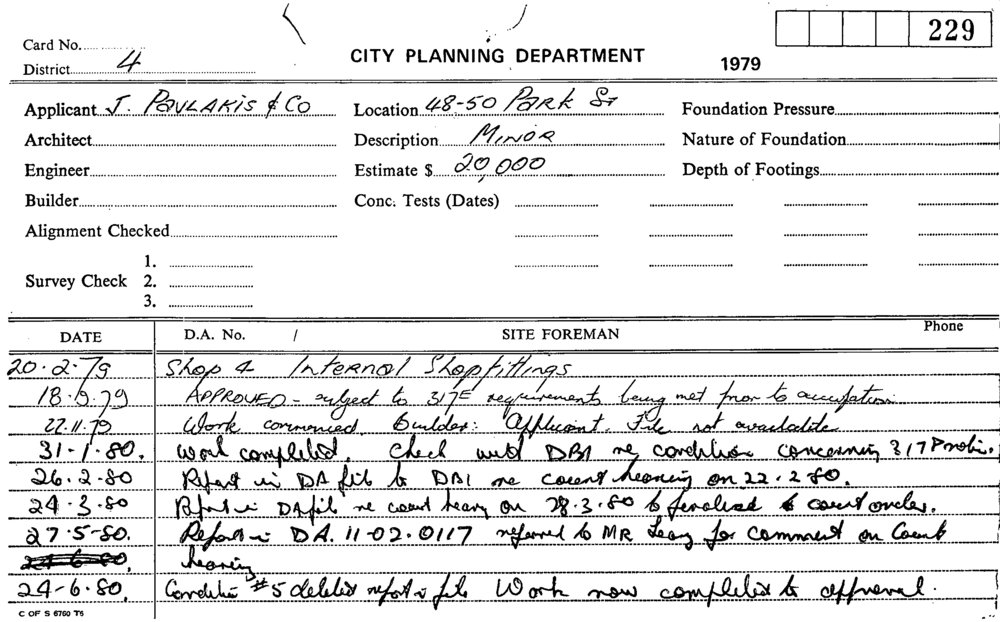 229
Card No.
District 4
CITY PLANNING DEPARTMENT
1979
Applicant J. PAVLAKIS & CO
Location 48-50 PARK ST
Foundation Pressure
Architect
Description MINOR
Nature of Foundation
Engineer
Estimate $ 20,000
Depth of Footings
Builder
Conc. Tests (Dates)
Alignment Checked
Survey Check 1.
2.
3.
DATE D.A. No. / SITE FOREMAN Phone
20.2.79 Shop 4 Internal Shopfittings
18.9.79 APPROVED - subject to 317E requirements being met prior to occupation
22.11.79 Work commenced. Builder: Applicant. File not available
31-1-80. Work completed. Check with DBI re condition concerning 317
26.2-80 Report in DA file to DBI re court hearing on 22.2.80.
24.3.80 Report in DA file re court hearing on 28.3.80 to finalise court order.
27.5-80. Report in DA. 11-02.0117 referred to MR for comment on Court
24-6-80. hearing
24-6.80. Condition #5 deleted report in file Work now completed to approval.
C OF S 6760 T5